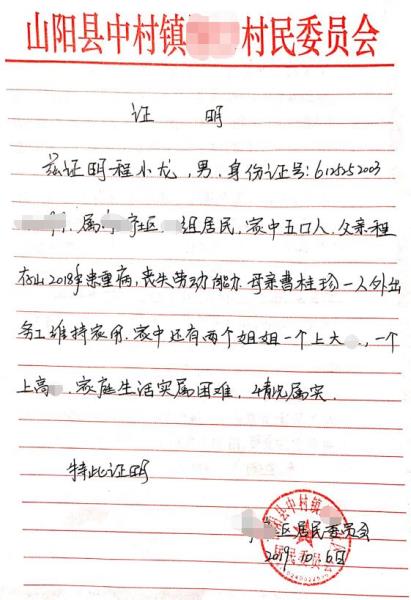 山阳县中村镇 村民委员会
证 明
兹证明程小龙，男，身份证号：6125252003
属 社区 组居民，家中五口人，父亲程
存山2018年患重病，丧失劳动能力，母亲曹桂珍一人外出
务工维持家用，家中还有两个姐姐一个上大 ，一个
上高 ，家庭生活实属困难，情况属实。
特此证明
区居民委员会
2019.10.6日
阳县中村镇
居民委员会